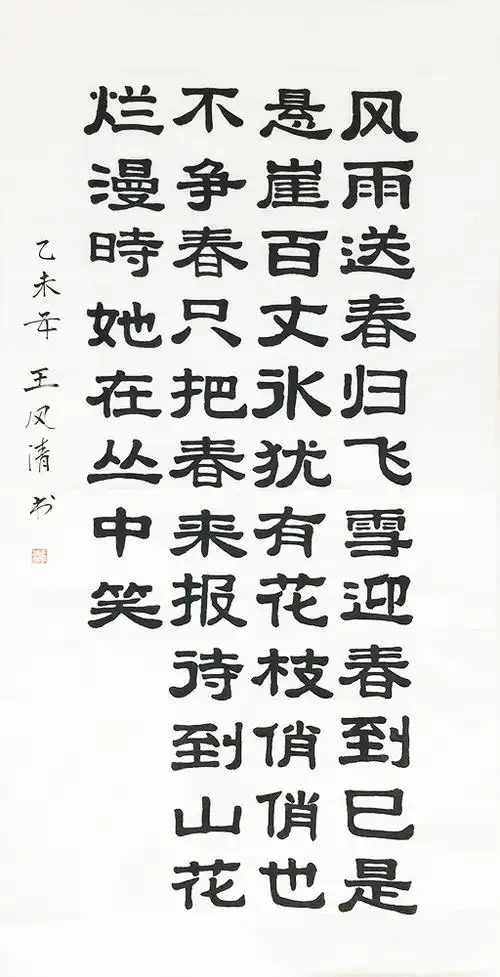 风雨送春归飞雪迎春到已是
悬崖百丈氷犹有花枝俏俏也
不争春只把春来报待到山花
烂漫時她在丛中笑
乙未年 王风清 书